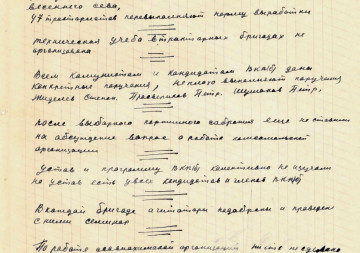 весеннего сева,
47 трактористов перевыполняют норму выработки
техническая учеба в тракторных бригадах не
организована
Всем коммунистам и кандидатам ВКП(б) даны
конкретные поручения, не плохо выполняют поручения
Жиделев Степан. Петр. Шумаков Петр.
после выборного партийного собрания еще не ставили
на обсуждение вопрос о работе комсомольской
организации
Устав и программу ВКП(б) колективно не изучали
но устав есть у всех кандидатов и членов ВКП(б)
В каждой бригаде агитаторы подобраны и проведен
с ними семинар
По работе осоавиахимской организации ни чего не сделано